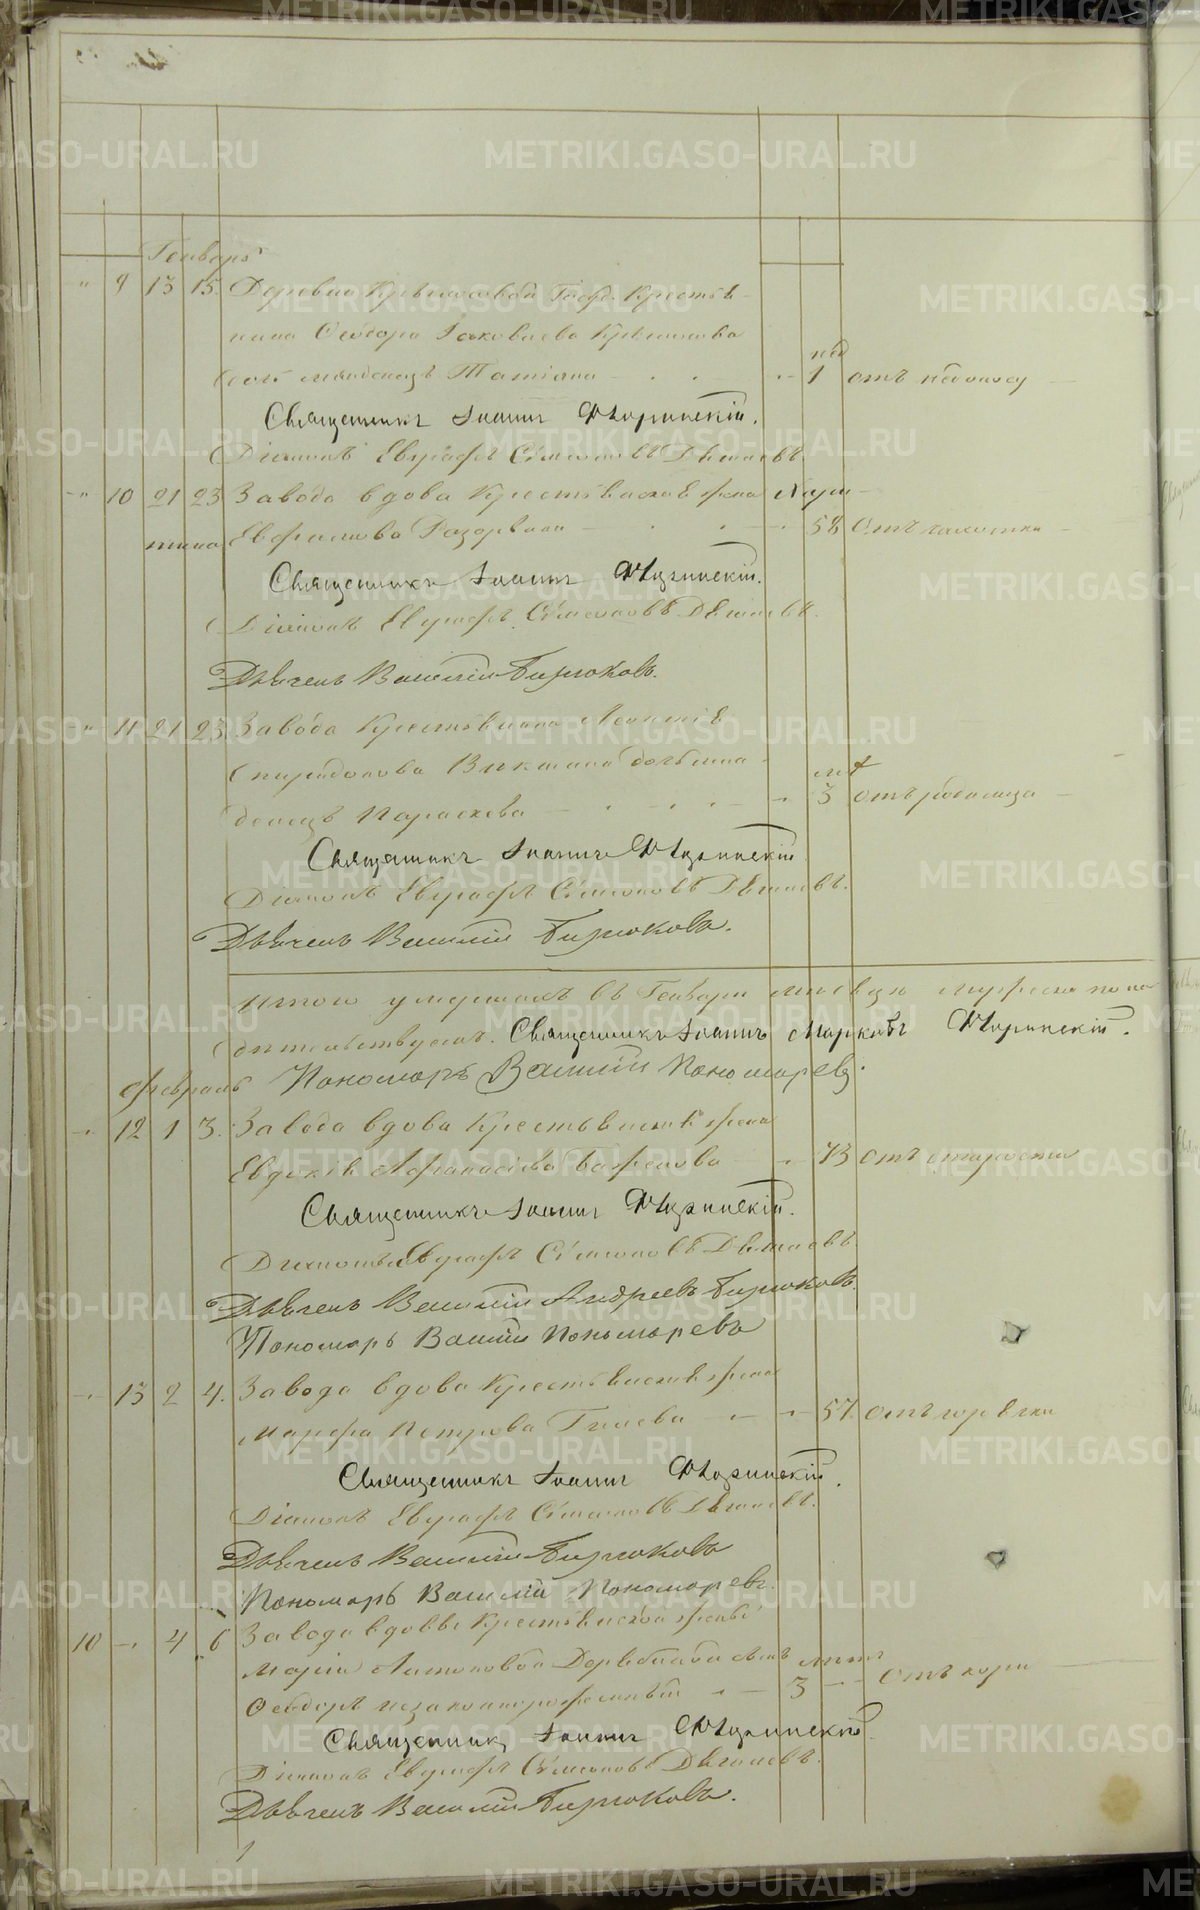 Генварь
" 9 13 15. Деревни Крыласовой Госуд. Крестья-
нина Ѳеодора Іаковлева Крыласова
младенецъ Татіана 1 нед отъ
Священникъ Іоаннъ Флоринскій.
Діаконъ Евграфъ Симоновъ
" 10 21 23 Завода вдова Крестьянская жена Хари-
тина Ефимова 58 Отъ чахотки
Священникъ Іоаннъ Флоринскій.
Діаконъ Евграфъ Симоновъ
Дьячекъ Василій Бирюковъ.
" 11 21 23 Завода Крестьянина Леонтія
Спиридонова дочь мла-
денецъ Параскева 3 лѣт отъ родимца
Священникъ Іоаннъ Флоринскій
Діаконъ Евграфъ Симоновъ
Дьячекъ Василій Бирюковъ.
Итого умершихъ въ Генварѣ мѣсяцѣ мужеска пола
свидѣтельствуемъ. Священникъ Іоаннъ Марковъ Флоринскій.
Февраль Пономарь Василій Пономаревъ.
12 1 3. Завода вдова Крестьянская жена
Евдокія Афанасіева Бажова 73 отъ старости
Священникъ Іоаннъ Флоринскій.
Діаконъ Евграфъ Симоновъ
Дьячекъ Василій Андреевъ Бирюковъ.
Пономарь Василій Пономаревъ
13 2 4. Завода вдова Крестьянская жена
Марфа Петрова Гилева 57. Отъ горячки
Священникъ Іоаннъ Флоринскій.
Діаконъ Евграфъ Симоновъ
Дьячекъ Василій Бирюковъ
Пономарь Василій Пономаревъ.
10 4 6 Завода вдовы Крестьянской жены
Маріи Антоновой сынъ лѣтъ
Ѳеодоръ незаконнорожденный 3 Отъ кори
Священникъ Іоаннъ Флоринскій
Діаконъ Евграфъ Симоновъ
Дьячекъ Василій Бирюковъ.